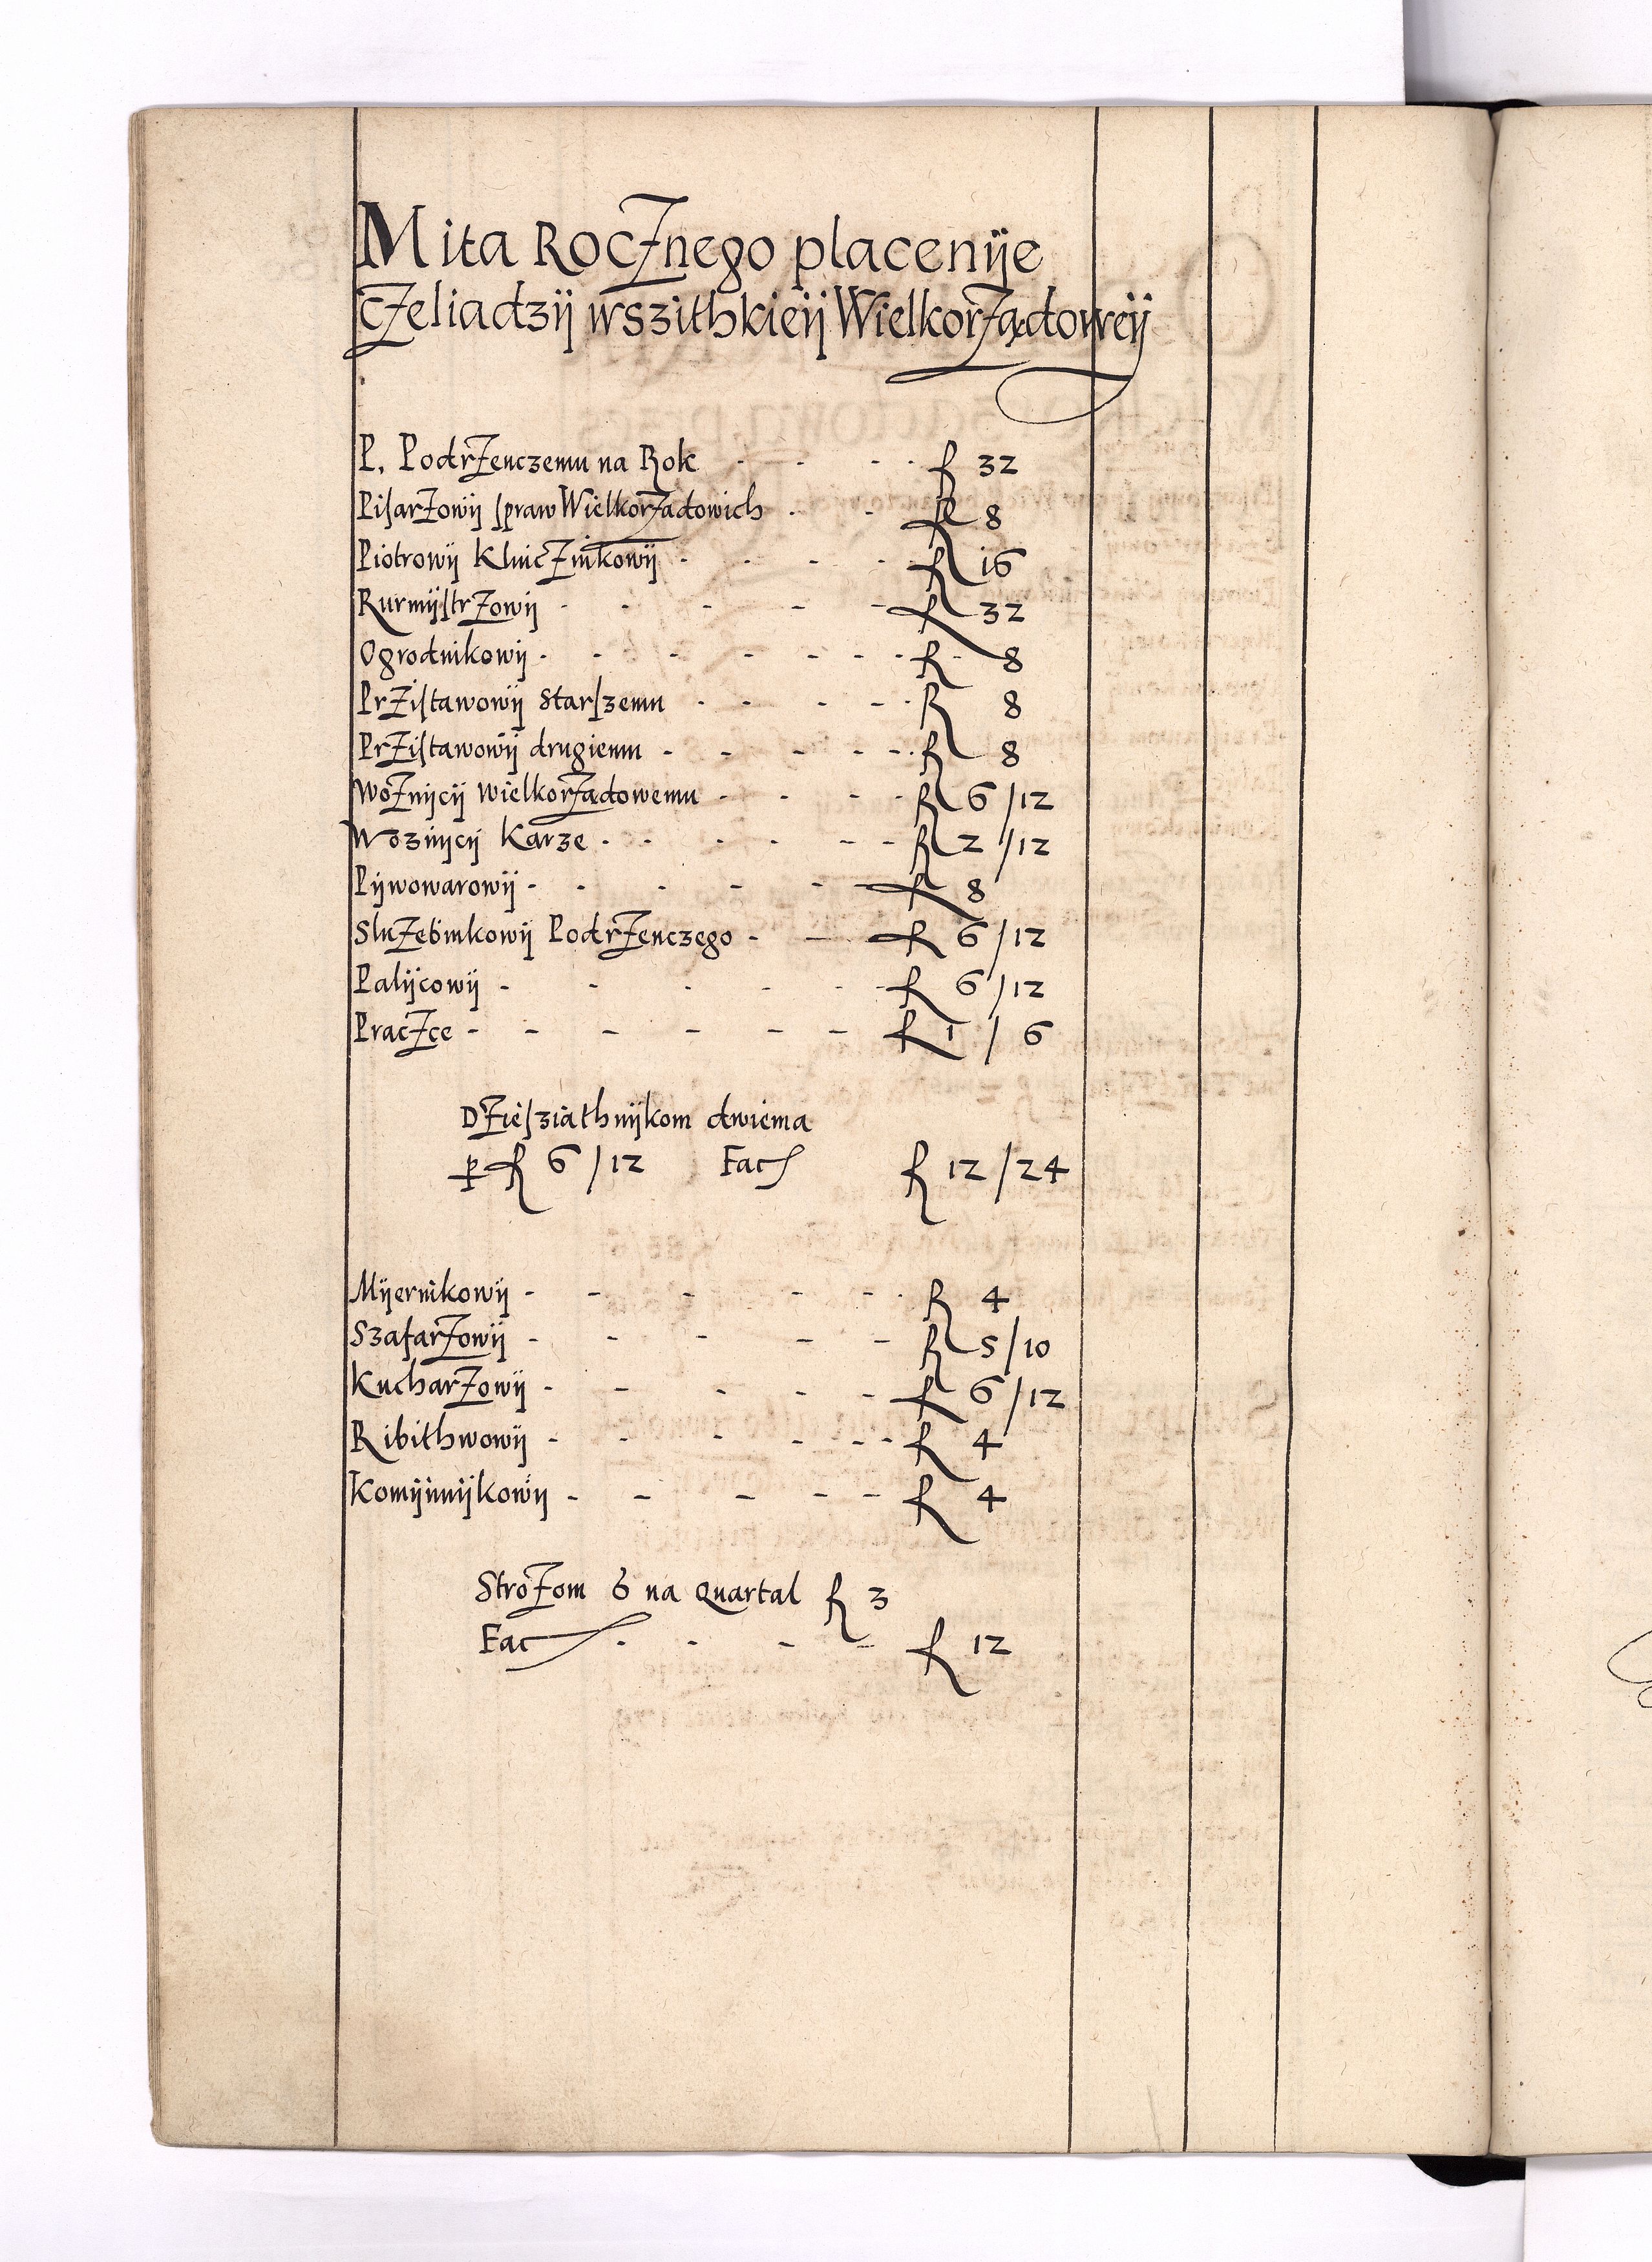 Mita Rocznego placenije
czeliadzij wszithkieij Wielkorządoweij
P. Podrzenczemu na Rok - - - - f 32
Pisarzowij spraw Wielkorządowich - - f 8
Piotrowij Klucznikowij - - - - f 16
Rurmijstrzowij - - - - - f 32
Ogrodnikowij - - - - - - - f 8
Przistawowij starszemu - - - - - f 8
Przistawowij drugiemu - - - - - f 8
Woznijcij wielkorządowemu - - - - f 6/12
Woznijcij Karze - - - - - - f 2/12
Pijwowarowij - - - - - f 8
Sluzebnikowij Podrzenczego - - f 6/12
Palijcowij - - - - - - f 6/12
Praczce - - - - - - f 1/6
Dziesziathnijkom dwiema
per f 6/12 Fac f 12/24
Mijernikowij - - - - - - f 4
Szafarzowij - - - - - f 5/10
Kucharzowij - - - - - f 6/12
Ribithwowij - - - - - - f 4
Komijnnijkowij - - - - - f 4
Strozom 6 na Quartal f 3
Fac - - - - f 12